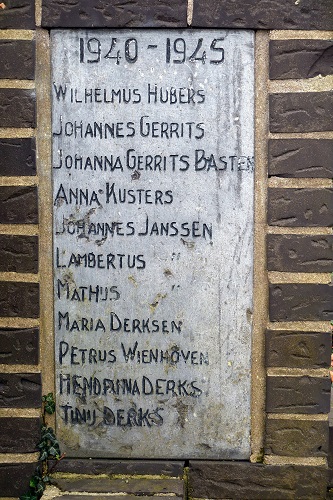 1940-1945
WILHELMUS HUBERS
JOHANNES GERRITS
JOHANNA GERRITS BASTEN
ANNA KUSTERS
JOHANNES JANSSEN
LAMBERTUS "
MATHIJS "
MARIA DERKSEN
PETRUS WIENHOVEN
HENDRINA DERKS
TINIJ DERKS